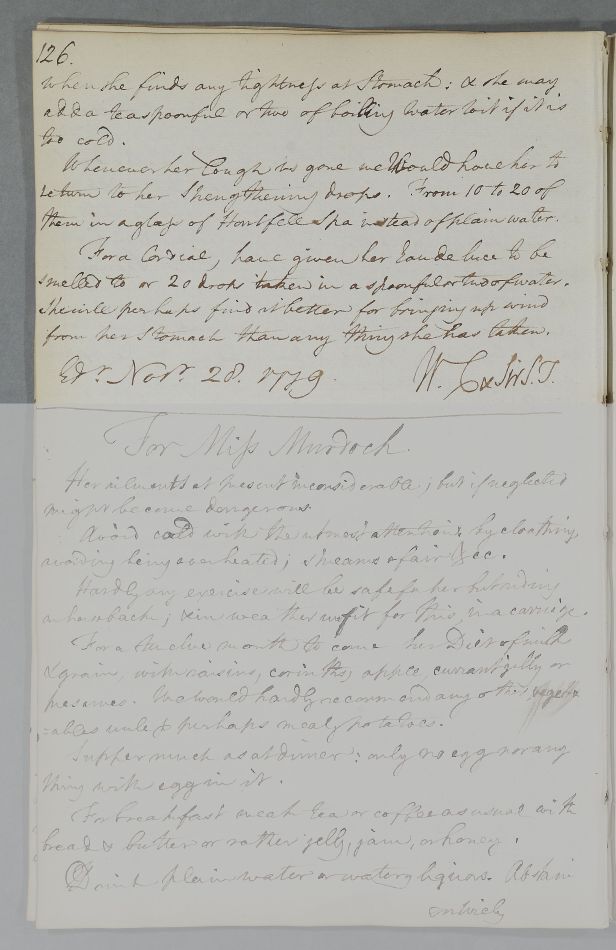 126.
when she finds any tightness at Stomach: & she may
add a teaspoonful or two of boiling water to it if it is
too cold.
Whenever her Cough is gone we Would have her to
return to her Strengthening drops. From 10 to 20 of
them in a glass of Hartfell Spa instead of plain water.
For a Cordial, have given her Eau de luce to be
smelled to or 20 drops taken in a spoonful or two of water.
She will perhaps find it better for bringing up wind
from her Stomach than any thing she has taken.
Edr. Novr. 28. 1779. W. C & Sir S. T.
For Miss Murdoch.
Her ailments at present inconsiderable; but if neglected
might become dangerous.
Avoid cold with the utmost attention by cloathing,
avoiding being overheated; streams of air &cc.
Hardly any exercise will be safe for her but riding
on horseback; & in weather unfit for this, in a carriage.
For a twelve month to come her Diet of milk
& grain, with raisins, corinths, apple, currant jelly or
preserves. We would hardly recommend any other veget-
-ables unless perhaps mealy potatoes.
Supper much as at dinner: only no egg nor any
thing with egg in it.
For breakfast weak tea or coffee as usual with
bread & butter or rather jelly, jam, or honey.
Drink plain water or watery liquors. Abstain
entirely